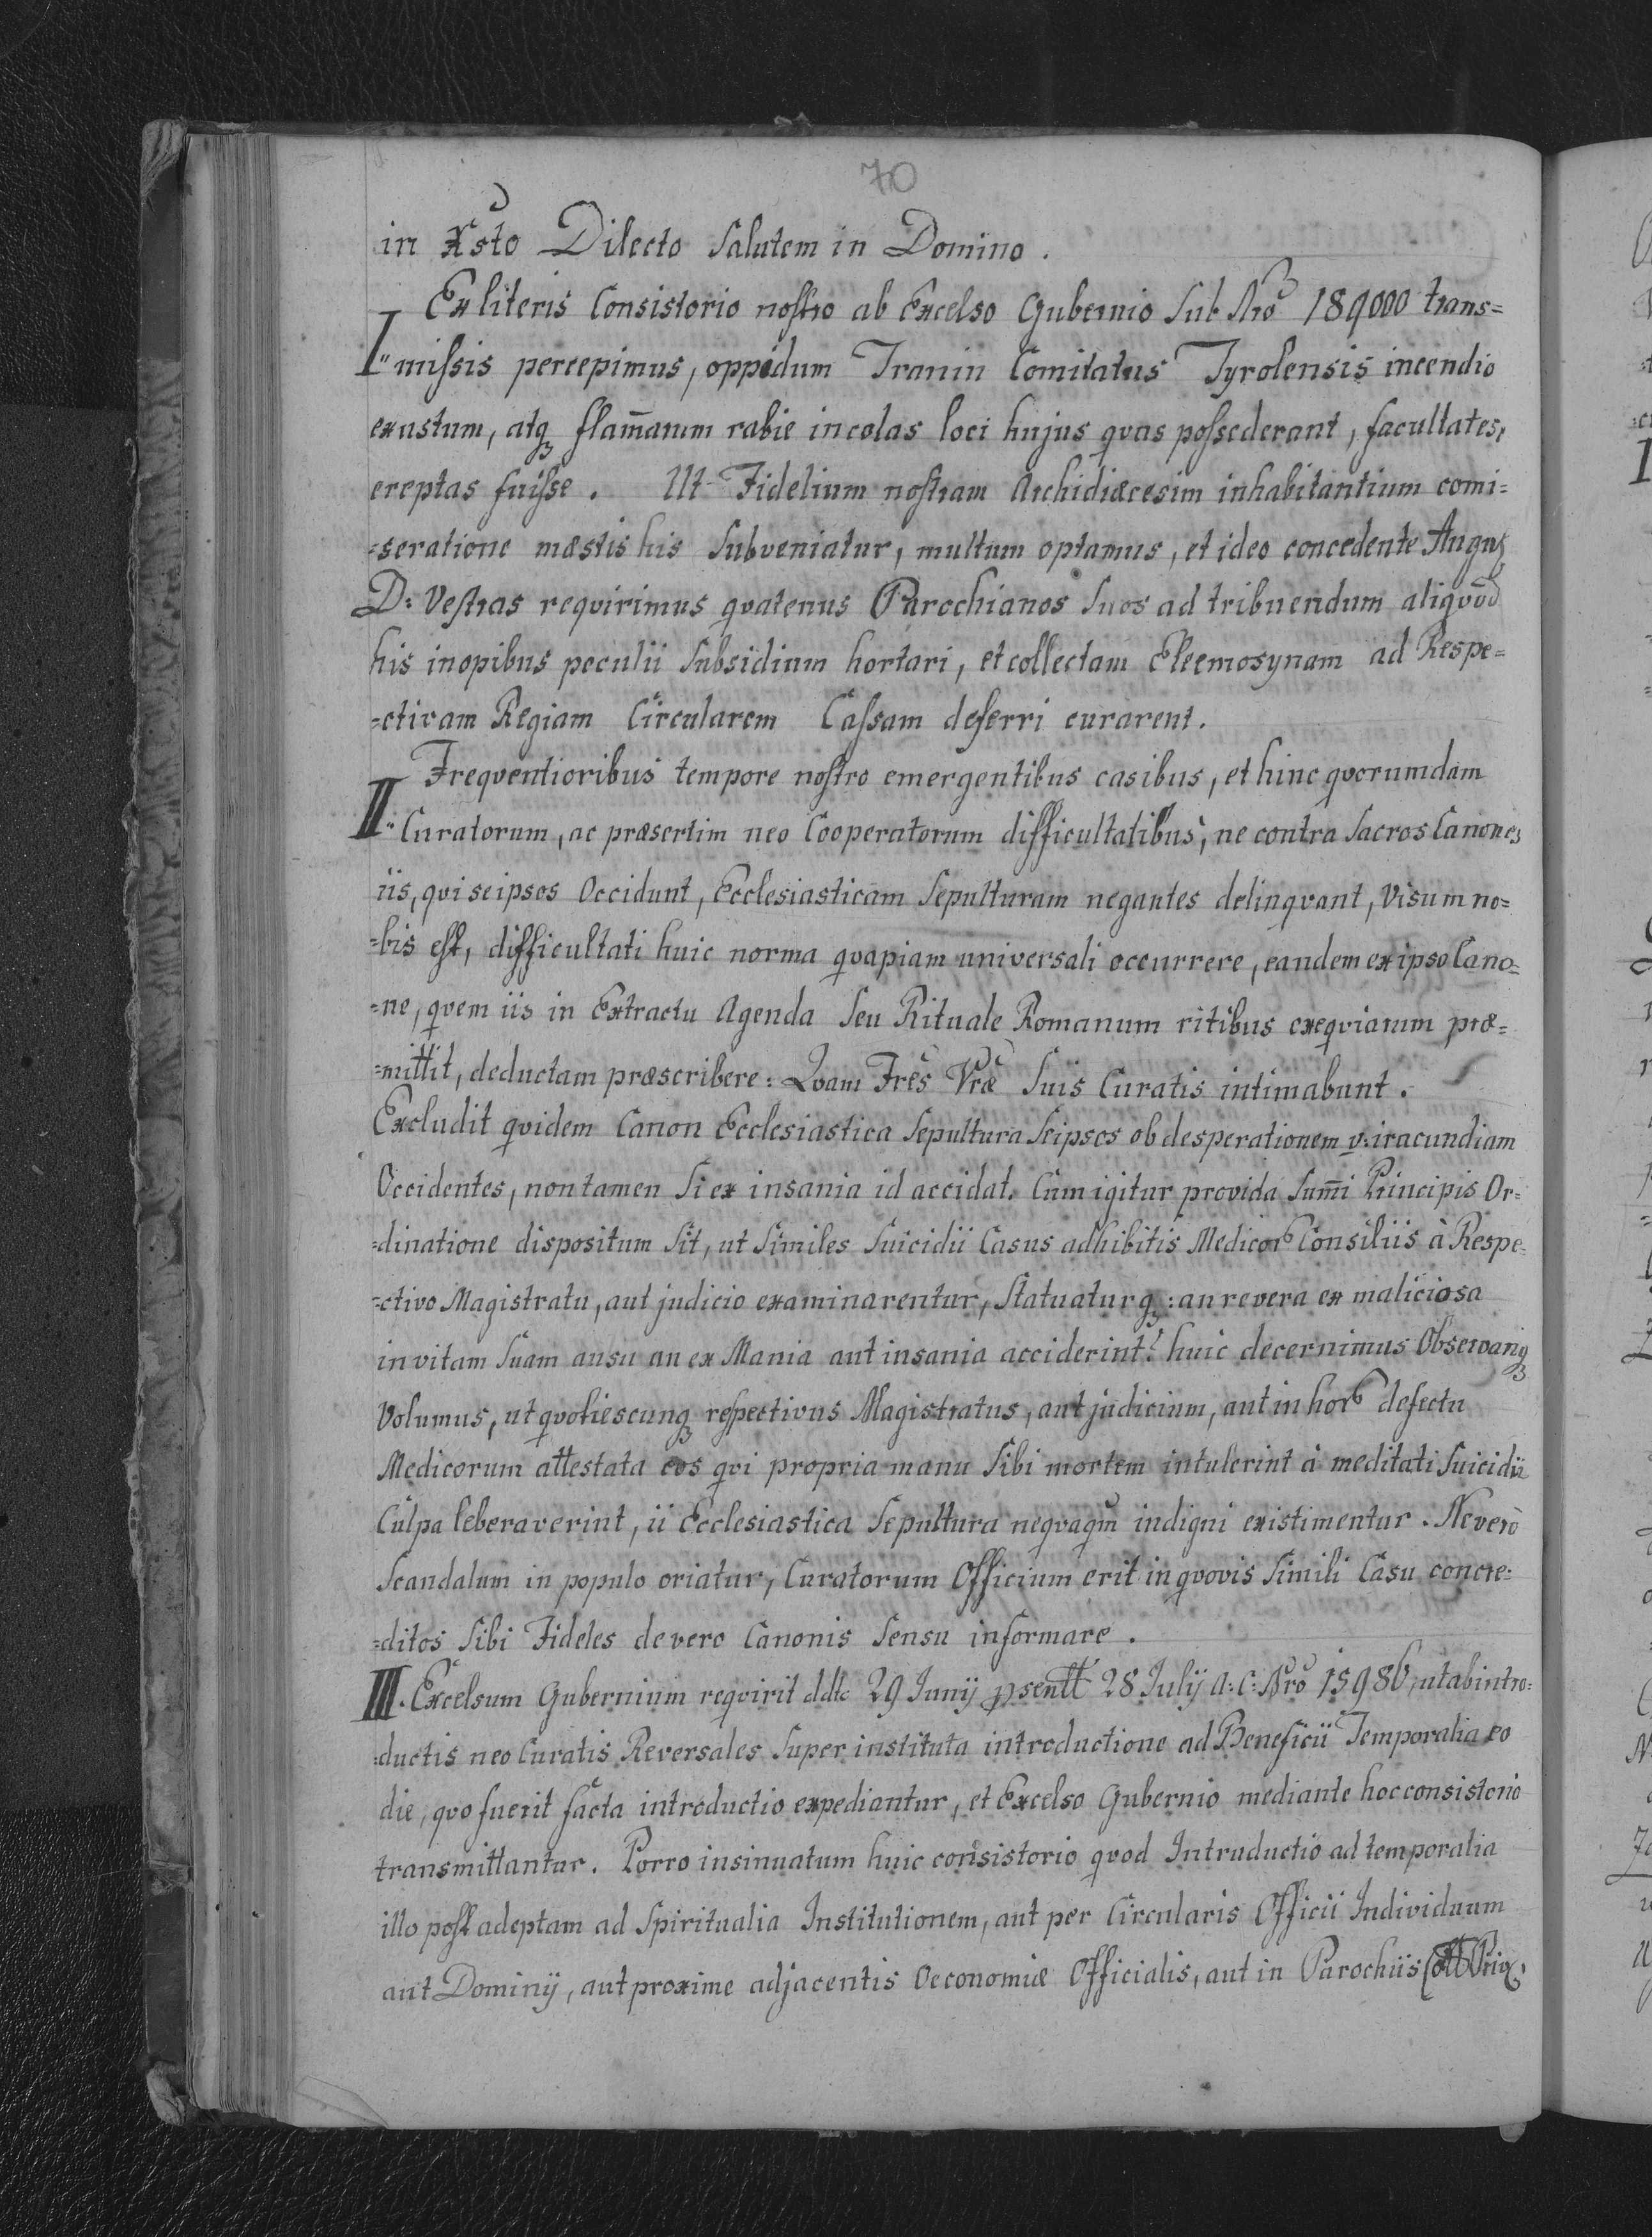 70
in Xsto Dilecto Salutem in Domino.
Ex literis Consistorio nostro ab Excelso Gubernio Sub Nro 189000 trans=
I. missis percepimus, oppidum Tranin Comitatus Tyrolensis incendio
exustum, atq flam̄arum rabie incolas loci hujus qvas possederant, facultates,
ereptas fuisse. Ut Fidelium nostram Archidiæcesim inhabitantium comi=
=seratione mæstis his Subveniatur, multum optamus, et ideo concedente
D: Vestras reqvirimus qvatenus Parochianos Suos ad tribuendum aliqvod
his inopibus peculii Subsidium hortari, et collectam Eleemosynam ad Respe=
=ctivam Regiam Circularem Cassam deferri curarent.
Freqventioribus tempore nostro emergentibus casibus, et hinc qvorumdam
II. Curatorum, ac præsertim neo Cooperatorum difficultatibus, ne contra Sacros Canones
iis, qvi seipsos Occidunt, Ecclesiasticam Sepulturam negantes delinqvant, Visum no=
=bis est, difficultati huic norma qvapiam universali occurrere, eandem ex ipso Cano=
=ne, qvem iis in Extractu Agenda Seu Rituale Romanum ritibus exeqviarum præ=
=mittit, deductam præscribere: Qvam Fres Vræ Suis Curatis intimabunt.
Excludit qvidem Canon Ecclesiastica Sepultura Seipsos ob desperationem v: iracundiam
Occidentes, non tamen Si ex insania id accidat. Cum igitur provida Sum̄i Principis Or=
=dinatione dispositum Sit, ut Similes Suicidii Casus adhibitis Medicor Consiliis à Respe=
=ctivo Magistratu, aut judicio examinarentur, Statuaturq: an revera ex maliciosa
in vitam Suam ausu an ex Mania aut insania acciderint? huic decernimus
Volumus, ut qvotiescunq respectivus Magistratus, aut judicium, aut in hor defectu
Medicorum attestata eos qvi propria manu Sibi mortem intulerint à meditati Suicidii
Culpa leberaverint, ii Ecclesiastica Sepultura neqvaqm indigni existimentur. Ne verò
Scandalum in populo oriatur, Curatorum Officium erit in qvovis Simili Casu concre=
=ditos Sibi Fideles de vero Canonis Sensu informare.
III. Excelsum Gubernium reqvirit ddto 29 Junij psentt 28 Julij A: C: Nro 15986, ut ab intro=
=ductis neo Curatis Reversales Super instituta introductione ad Beneficii Temporalia eo
die, qvo fuerit facta introductio expediantur, et Excelso Gubernio mediante hoc consistorio
transmittantur. Porro insinuatum huic consistorio qvod Intruductio ad temporalia
illo post adeptam ad Spiritualia Institutionem, aut per Circularis Officii Individuum
aut Dominij, aut proxime adjacentis Oeconomiæ Officialis, aut in Parochiis